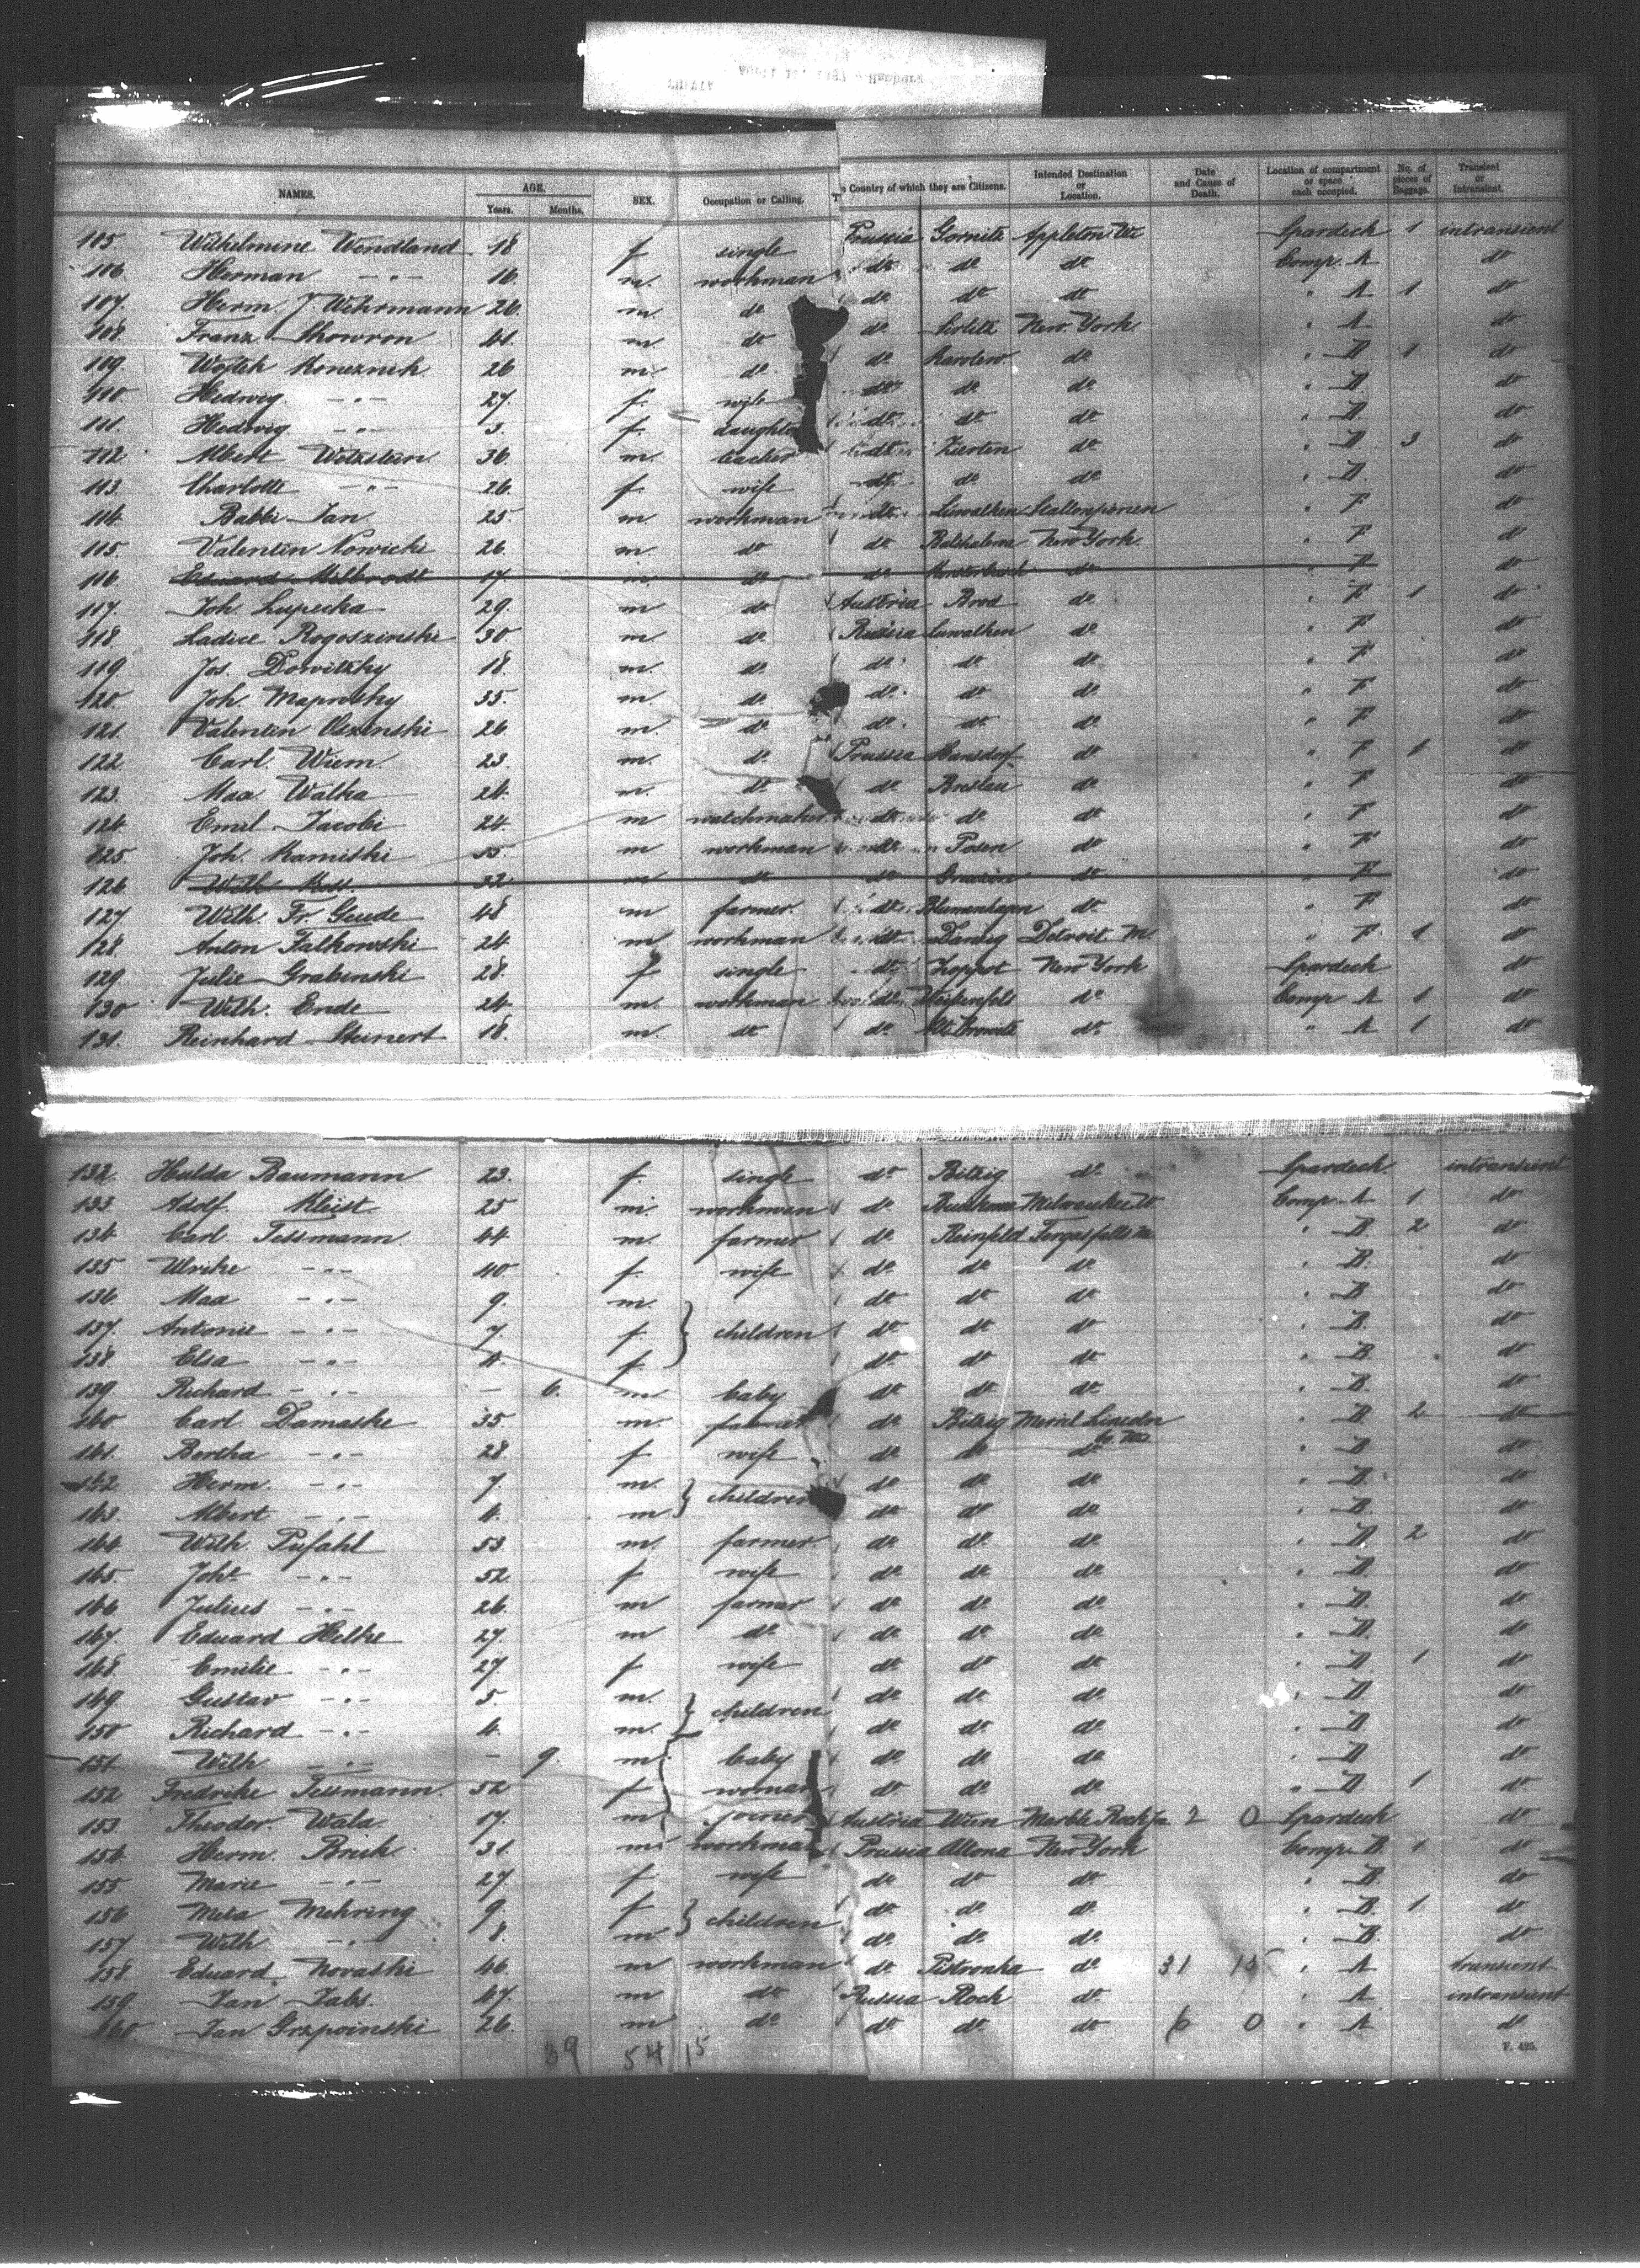 NAMES. AGE. Years. Months. SEX. Occupation or Calling. Country of which they are Citizens. Intended Destination or Location. Date and Cause of Death. Location of compartment or space each occupied. No. of pieces of Baggage. Transient or Intransient.
105 Wilhelmine Wendland 18 f single Prussia Gornitz Appleton Wi Spardeck 1 intransient
106 Herman -"- 16. m. workman do do do Comp. A do
107. Herm. J. Wehrmann 26. m. do do do do " A 1 do
108. Franz Skowron 41. m. do do New York " A do
109. Wojtek 26 m. do. do do " D 1 do
110 Hedwig -"- 27. f. wife do do do " D. do
111. Hedwig -"- 3. f. daughte do do do " D. do
112. Albert Wetzstein 36. m. teacher do do " D 3 do
113. Charlotte -"- 26. f. wife do do do " D. do
114. Jan 25. m. workman do Suwalken Stallupönen " F do
115. Valentin Nowicki 26. m. do do New York " F do
116 Eduard Milbrodt 17. m. do do do " F do
117. Joh. Lupecka 29. m do Austria Brod do " F 1 do
118. Ladise Rogoszinski 30. m. do Russia Suwalken do " F do
119 Jos. Dowitzky 18. m. do. do. do do " F do
120. Joh. 35. m do. do. do do " F do
121. Valentin 26. m. do do. do. do " F do
122. Carl Wiem. 23 m. do Prussia do " F 1 do
123. Max Walka 24. m. do do Breslau do " F do
124. Emil Jacobi 24. m watchmaker do do do " F do
125. Joh. Kamitski 55. m workman do Posen do " F do
126 Wilh. 32 m do do do " F do
127 Wilh. Fr. Gende 48 m farmer. do Blumenhagen do " F do
128. Anton Falkowski 24 m workman do Danzig Detroit M. " F 1 do
129. Julie Grabinski 28. f single do Zoppot New York Spardeck do
130 Wilh. Ende 24. m. workman do Weißenfels do Comp A 1 do
131. Reinhard Steinert 18. m. do do. do. " A 1 do
132. Hulda Baumann 23. f. single do Bitzig do. Spardeck intransient
133. Adolf Kleist 25 m. workman do Milwaukee W. Comp. A 1 do
134. Carl Tessmann 44 m. farmer do Reinfeld Fergusfalls M " B. 2 do
135 Ulrike -"- 40. f. wife do do do " B. do
136. Max -"- 9. m. do do do " B. do
137. Antonie -"- 7 f. children do do do " B. do
138. Elsa -"- 4. f. do do do " B. do
139 Richard -"- - 6. m baby do do do " B. do
140 Carl Damaske 35 m. farmer do Bitzig Merril Lincoln " B. 2 do
Co. Wis.
141. Bertha -"- 28. f wife do do do " B do
142 Herm. -"- 7. m. do do do " B. do
143. Albert -"- 4. m. children do do do " B. do
144. Wilh. Pufahl 53 m. farmer do do do " D 2 do
145. Joh. -"- 52 f wife do do do " D. do
146 Julius -"- 26. m farmer do do do " D. do
147. Eduard Helke 27. m do. do do do " D. do
148. Emilie -"- 27 f wife do do do " D. 1 do
149 Gustav -"- 5. m. do do do " D. do
150 Richard -"- 4. m. children do do do " D. do
151. Wilh -"- - 9. m. baby do do do " D do
152 Fredrike Tessmann. 52 f woman do do do " D 1 do
153. Theodor Wala 17. m joiner Austria Wien Marble Rock Ja 2 0 Spardeck do
154. Herm. 31. m workman Prussia Altona New York Comp B. 1 do
155 Marie -"- 27 f wife do do do " B. do
156 Meta Mehring 9. f do do do " B. 1 do
157 Wilh -"- 8. m children do. do. do " B. do
158. Eduard Novatski 46. m workman do do 31 15 " A transient
159. Jan 47. m do Russia Rock do. " A intransient
160 Jan 26. m do do do do 6 0 " A do
39 54 15
F. 425.